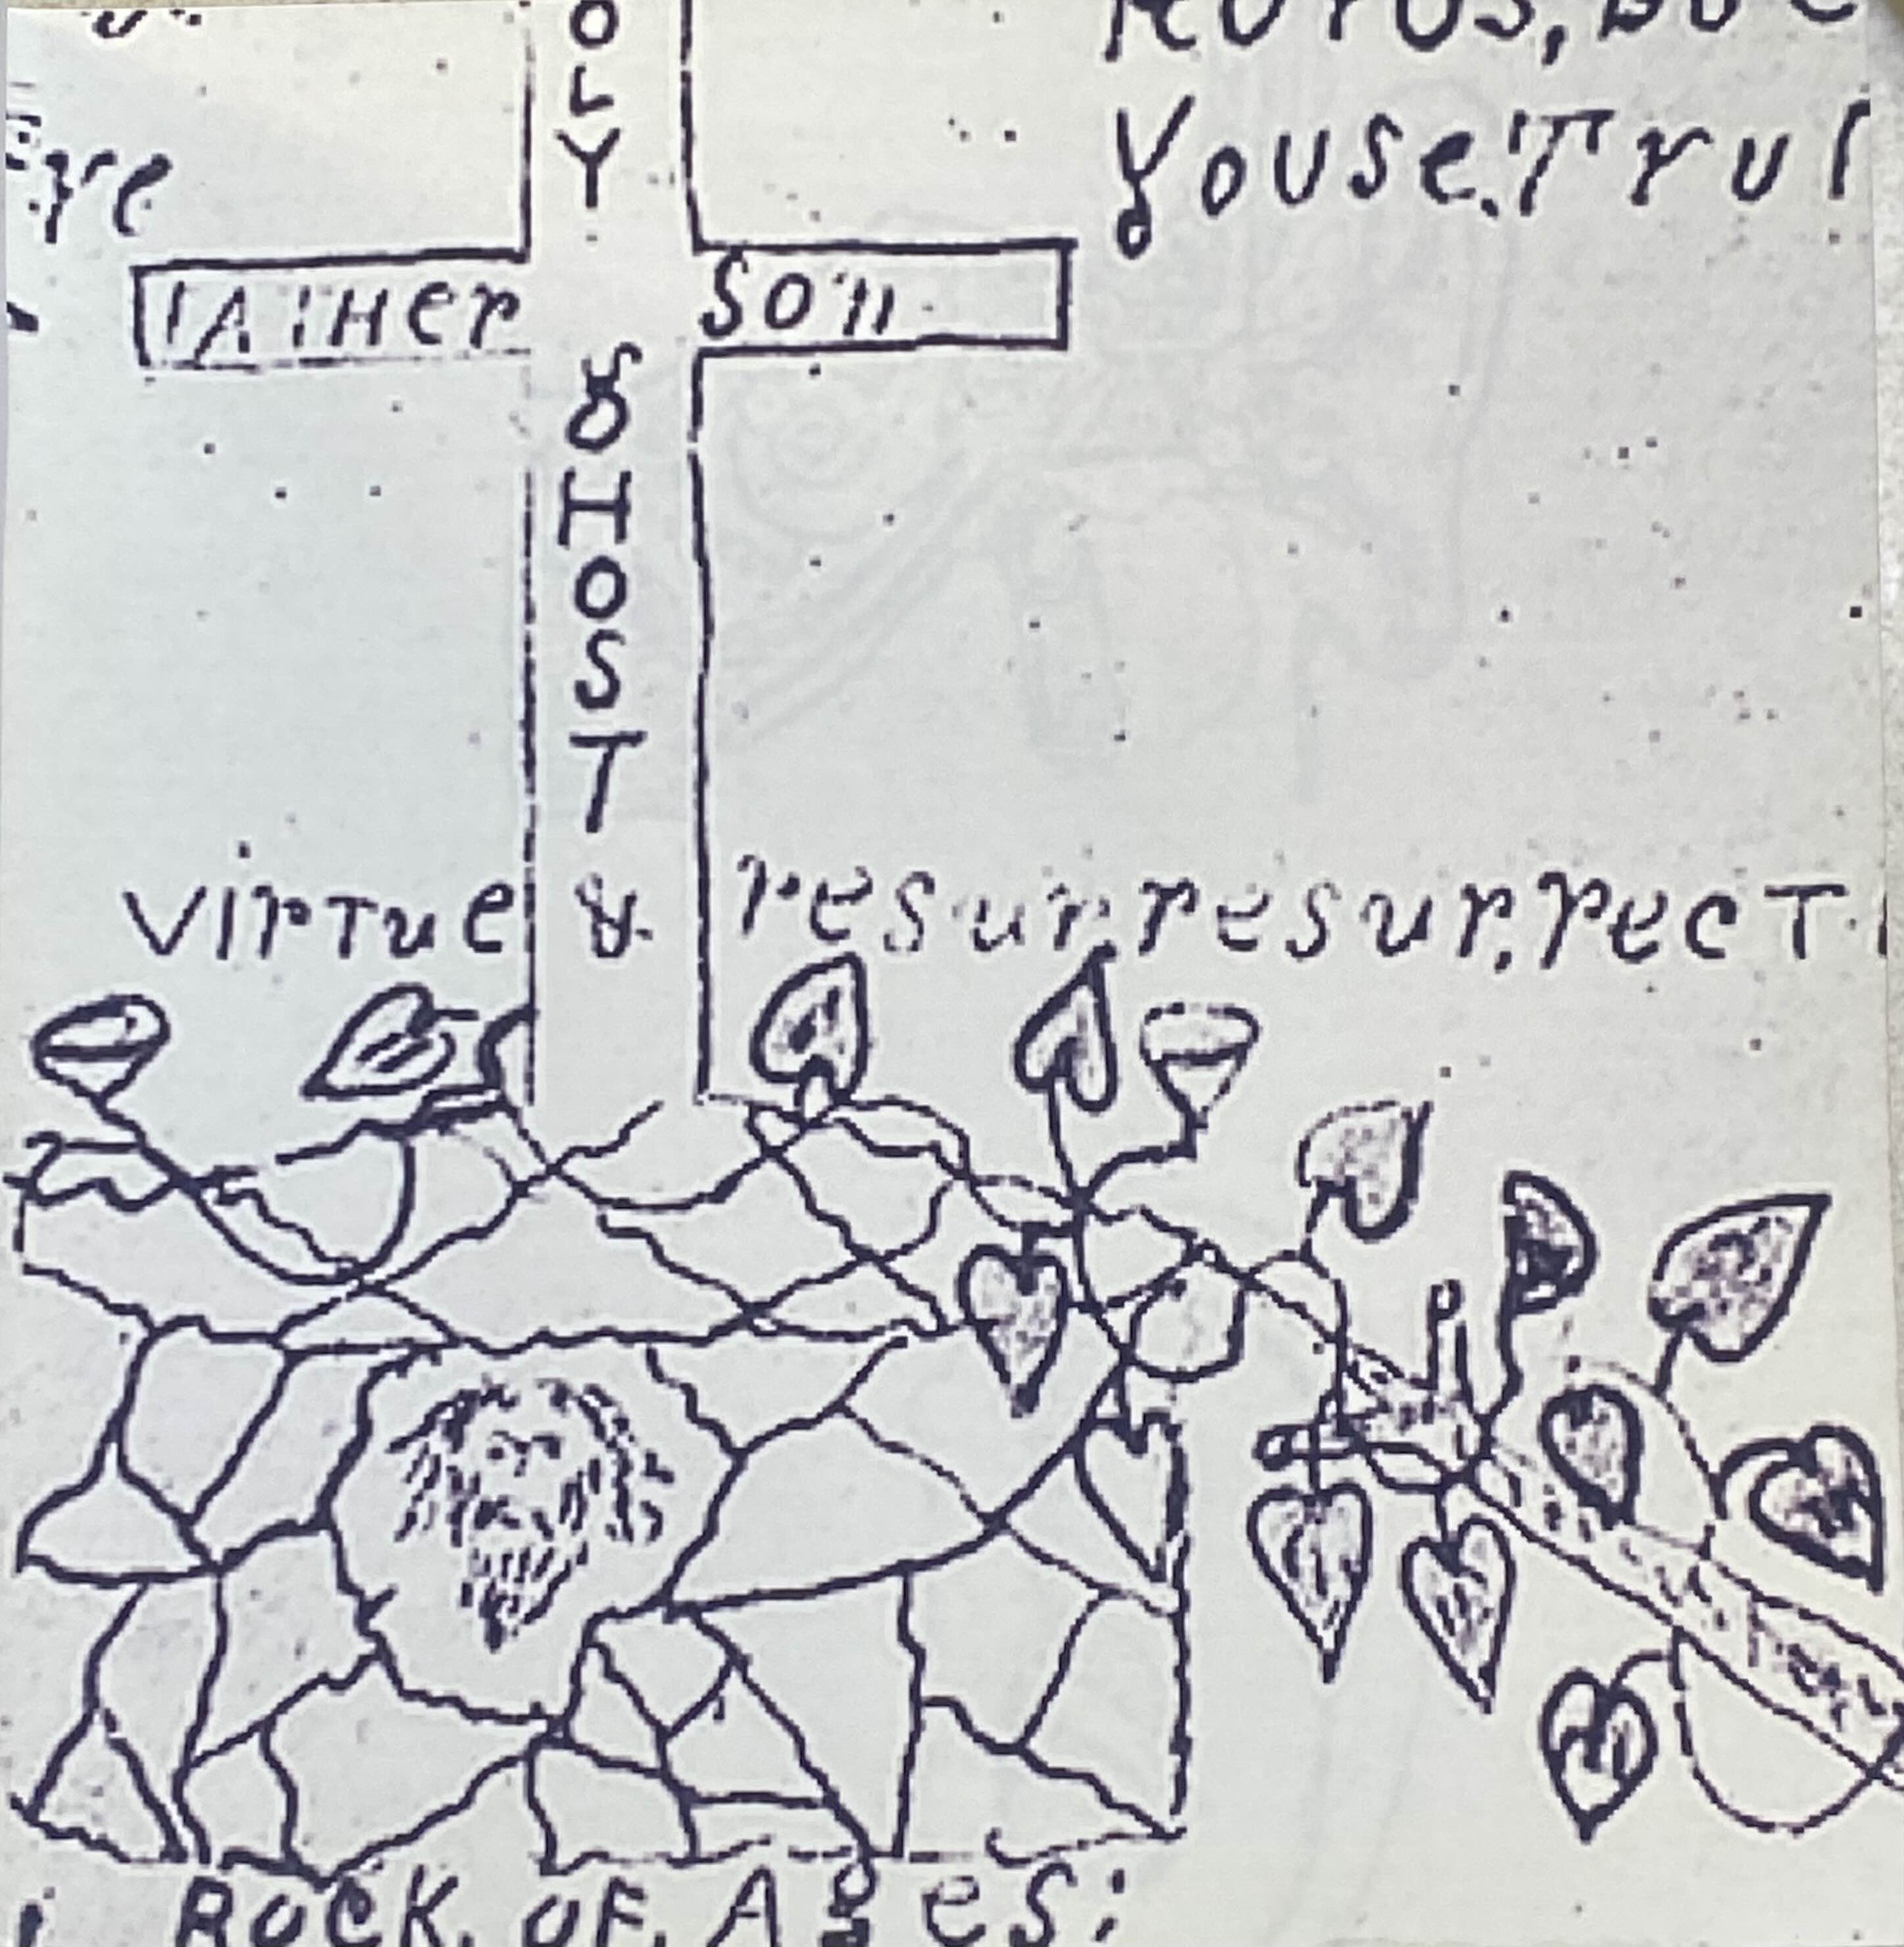 OLY
youse. Trul
FATHer
Son
GHOST
virtue & resur. resur. rrect
ROCK. OF. Ages: